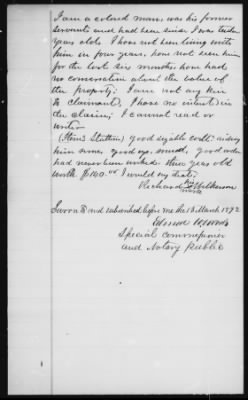 I am a colored man, was his former
servant and had been since I was twelve
years old. I have not been living with
him in four years, have not seen him
for the last six months, have had
no conversation about the value of
the property. I am not any kin
to claimant, I have no interest in
the claim, I cannot read or
write
good sizable colt
him some, good age, sound, good order
had never been worked three years old
worth $160.00 I would say that.
Richard his Wilkerson
mark
Sworn to and subscribed before me the 13 March 1872
Special commissioner
and Notary Public